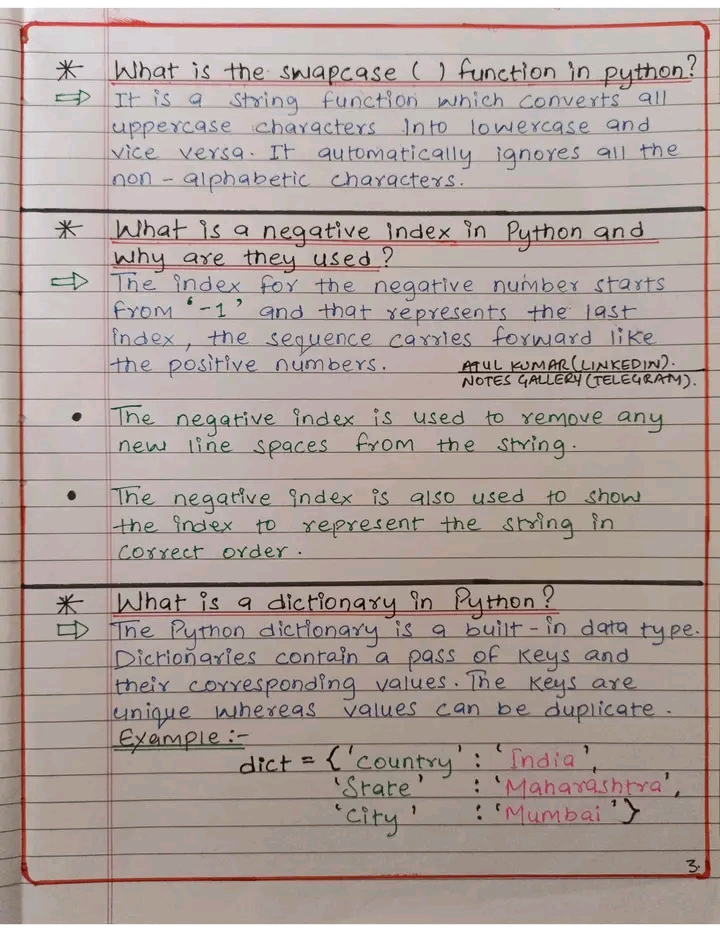 * What is the swapcase ( ) function in python?
⇒ It is a string function which converts all
uppercase characters Into lowercase and
vice versa. It automatically ignores all the
non - alphabetic characters.
* What is a negative index in Python and
why are they used ?
⇒ The index for the negative number starts
from ‘-1’ and that represents the last
index , the sequence carries forward like
the positive numbers.
ATUL KUMAR (LINKEDIN).
NOTES GALLERY (TELEGRAM).
• The negative index is used to remove any
new line spaces from the string.
• The negative index is also used to show
the index to represent the string in
correct order.
* What is a dictionary in Python?
⇒ The Python dictionary is a built-in data type.
Dictionaries contain a pass of keys and
their corresponding values. The keys are
unique whereas values can be duplicate.
Example :-
dict = {‘country’ : ‘India’,
‘State’ : ‘Maharashtra’,
‘City’ : ‘Mumbai’}
3.